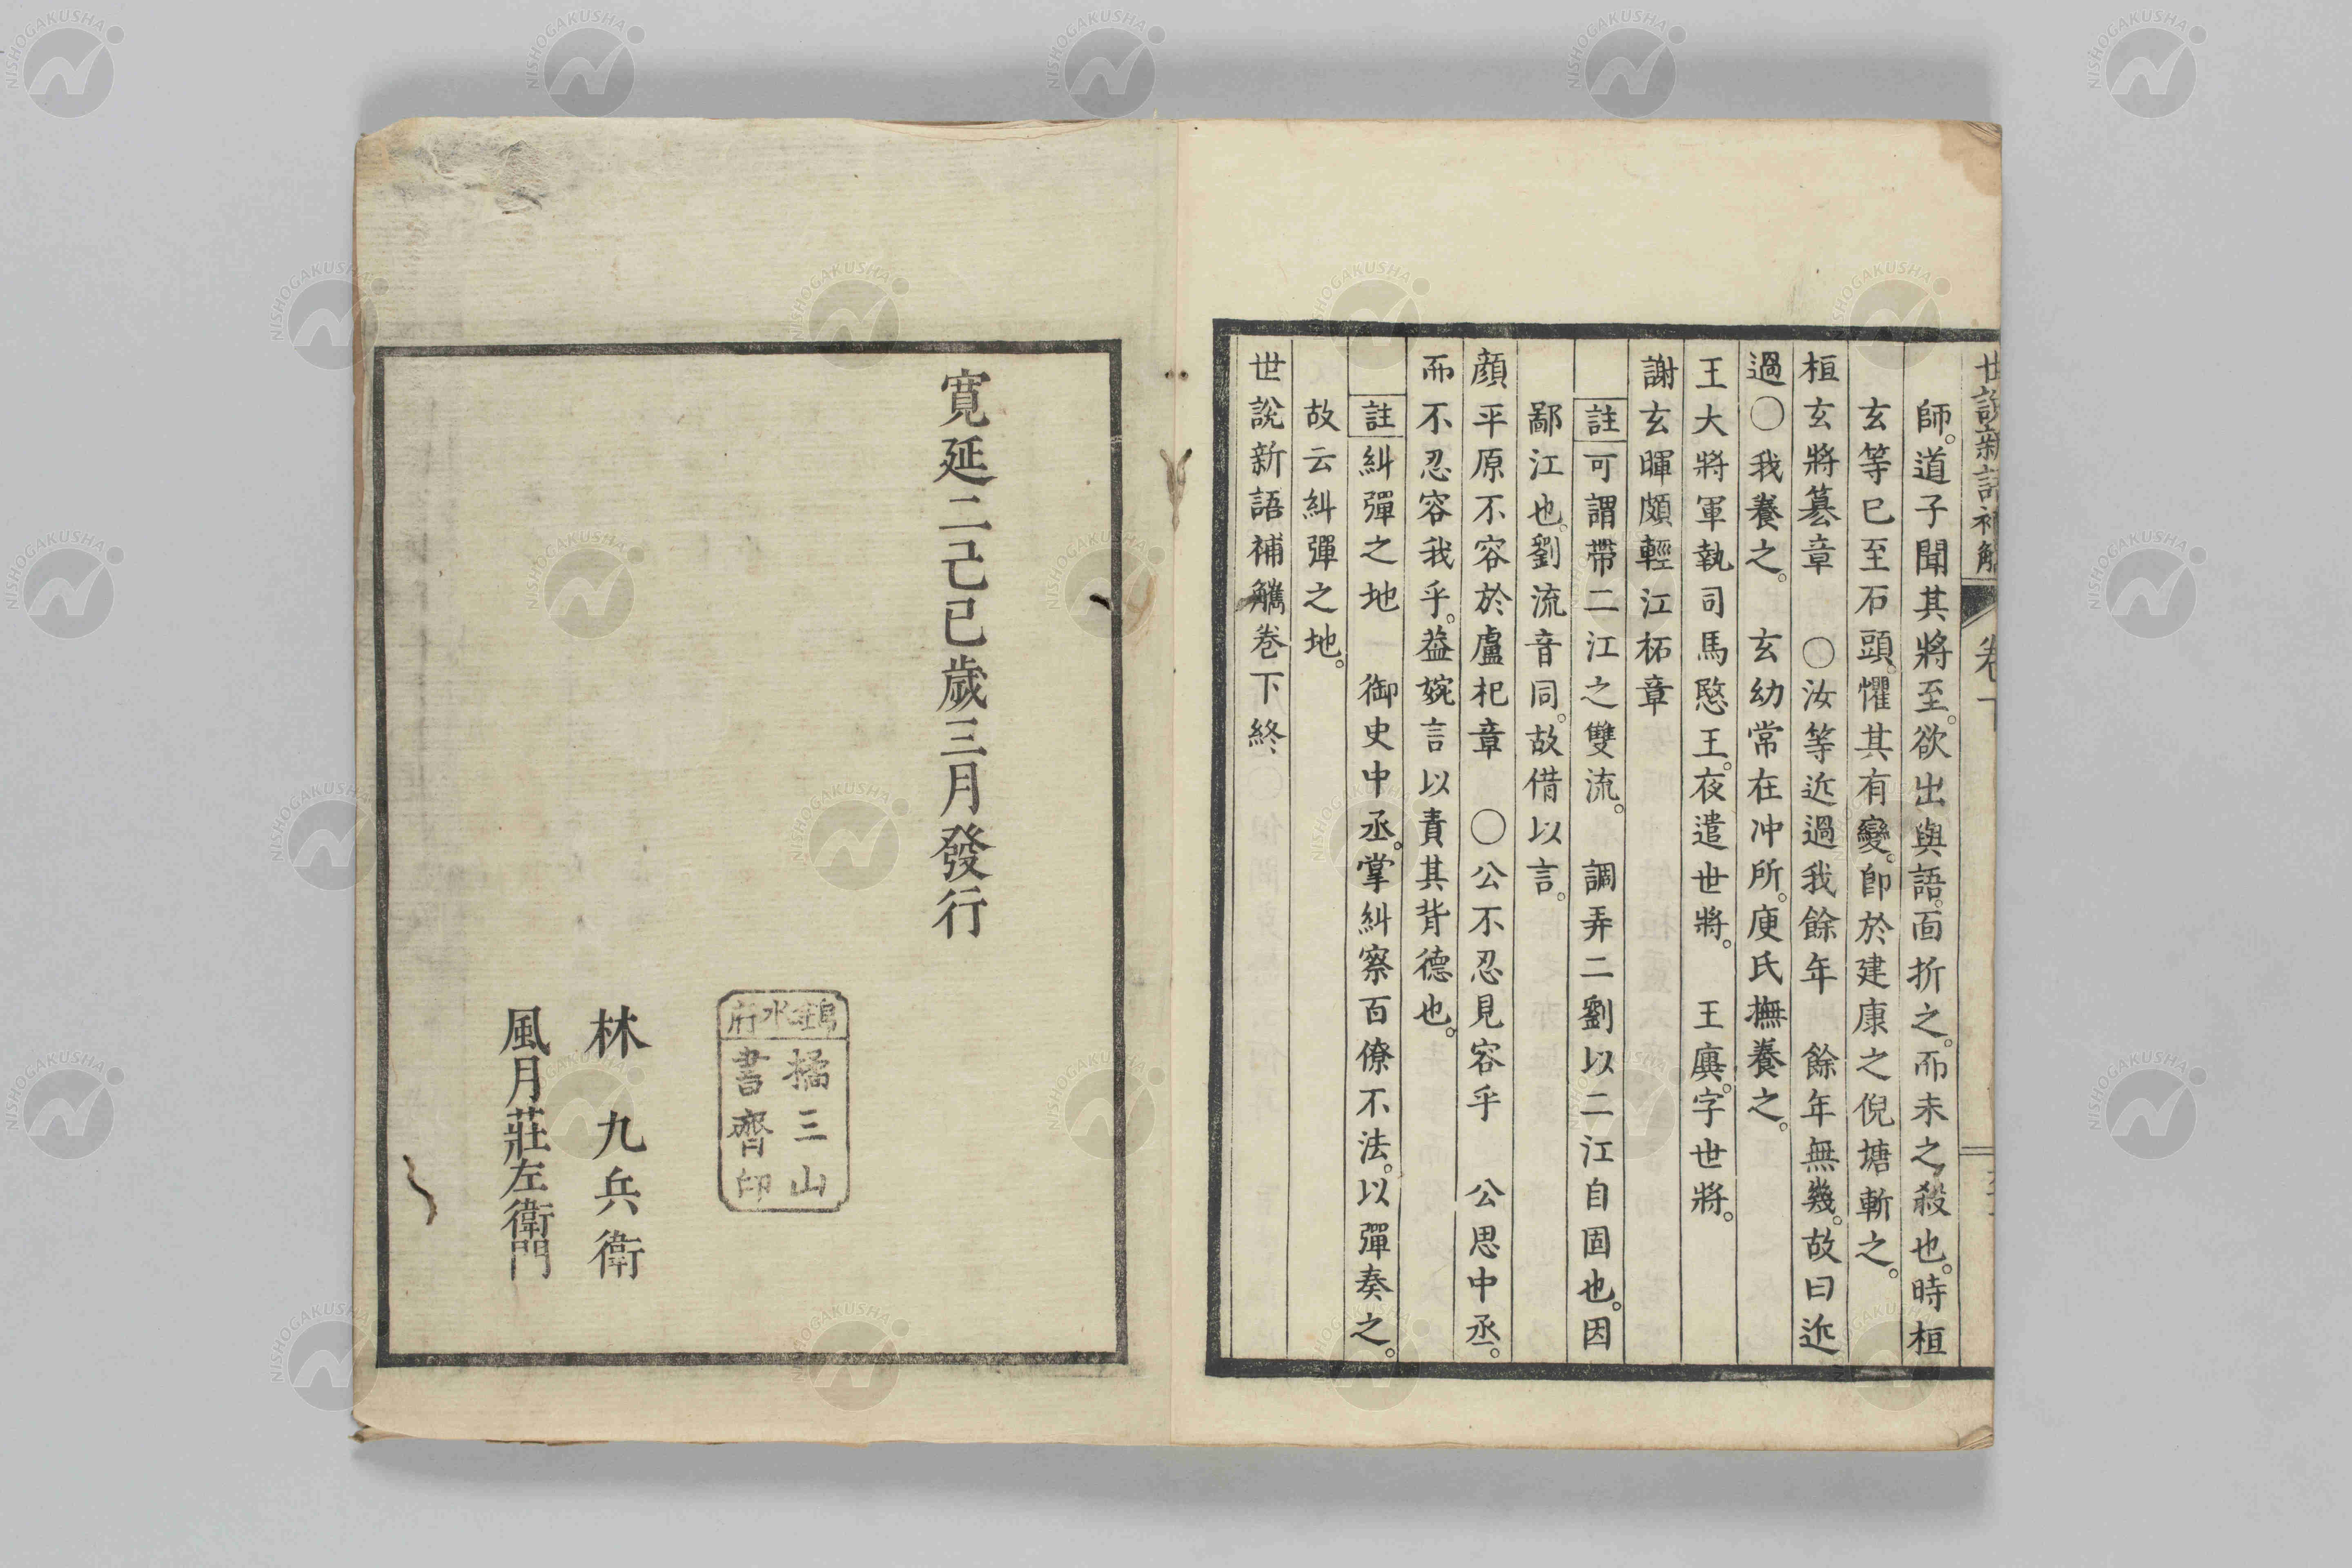 世說新語補觿 卷下
師。道子聞其將至。欲出與語。面折之。而未之殺也。時桓
玄等已至石頭。懼其有變。卽於建康之倪塘斬之。
桓玄將篡章　○汝等近過我餘年　餘年無幾。故曰近
過○我養之。　玄幼常在冲所。庾氏撫養之。
王大將軍執司馬愍王。夜遣世將。　王廙。字世將。
謝玄暉頗輕江柘章
註可謂帶二江之雙流。　調弄二劉以二江自固也。因
鄙江也。劉流音同。故借以言。
顔平原不容於盧杞章　○公不忍見容乎　公思中丞。
而不忍容我乎。益婉言以責其背德也。
註糾彈之地　御史中丞。掌糾察百僚不法。以彈奏之。
故云糾彈之地。
世說新語補觿卷下終
寬延二己巳歲三月發行
水府
橘三山
書齋印
林九兵衛
風月莊左衛門
NISHOGAKUSHA